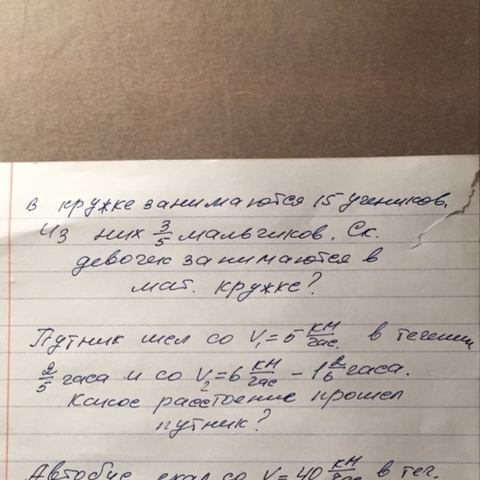 в кружке занимаются 15 учеников.
Из них 3/5 мальчиков. Ск.
девочек занимаются в
мат. кружке?
Путник шел со V₁=5 км/час в течении
2/5 часа и со V₂=6 км/час – 1 2/6 часа.
Какое расстоение прошел
путник?
Автобус ехал со V=40 км/час в теч.